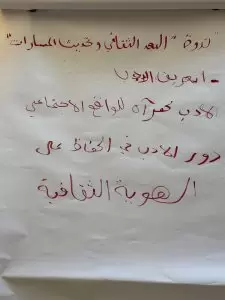 ندوة "البعد الثقافي وتحديث المسارات"
- تعريف الأدب
الأدب كمرآة للواقع الاجتماعي
دور الأدب في الحفاظ على
الهوية الثقافية